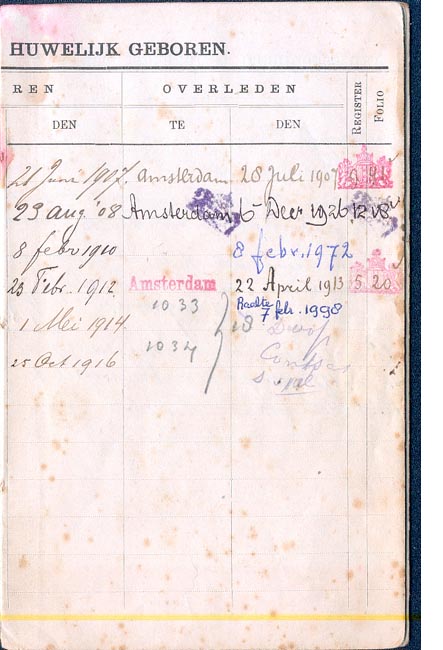 HUWELIJK GEBOREN.
REN OVERLEDEN REGISTER FOLIO
DEN TE DEN
21 Juni 1907. Amsterdam 28 Juli 1907
29 aug '08 Amsterdam 6 Decr 1926 12 18
8 febr 1910 8 febr. 1972
23 Febr. 1912. Amsterdam 22 April 1913 5. 20
1033 Raalte 7 febr. 1998
1 Mei 1914 18
1034
25 Oct 1916